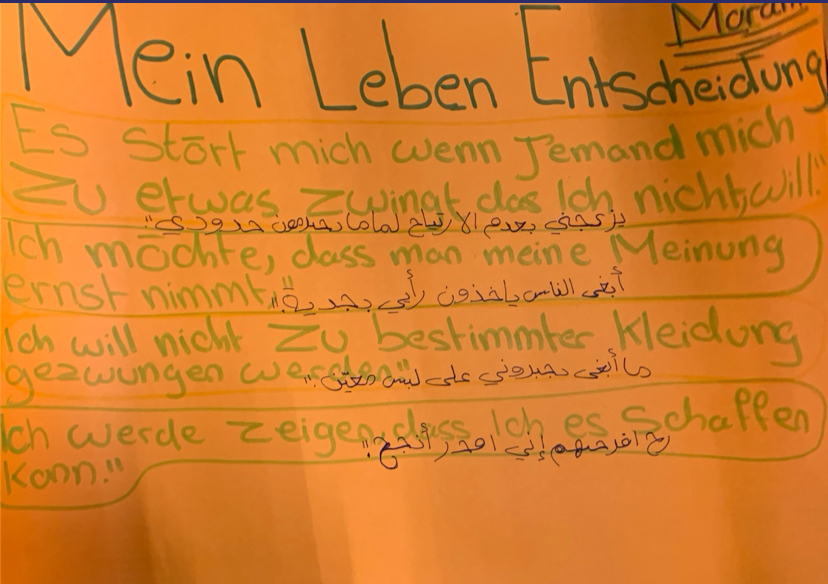 Maram
Mein Leben Entscheidung
Es Stört mich wenn Jemand mich
Zu etwas zwingt das Ich nicht will."
يزعجني بعدم الارتياح لما ما يحترمون حدودي."
Ich möchte, dass man meine Meinung
ernst nimmt."
أبغى الناس ياخذون رأيي بجدية."
Ich will nicht zu bestimmter Kleidung
gezwungen werden"
ما أبغى يجبروني على لبس معيّن."
Ich werde zeigen, dass Ich es Schaffen
kann."
رح إني اقدر أنجح."